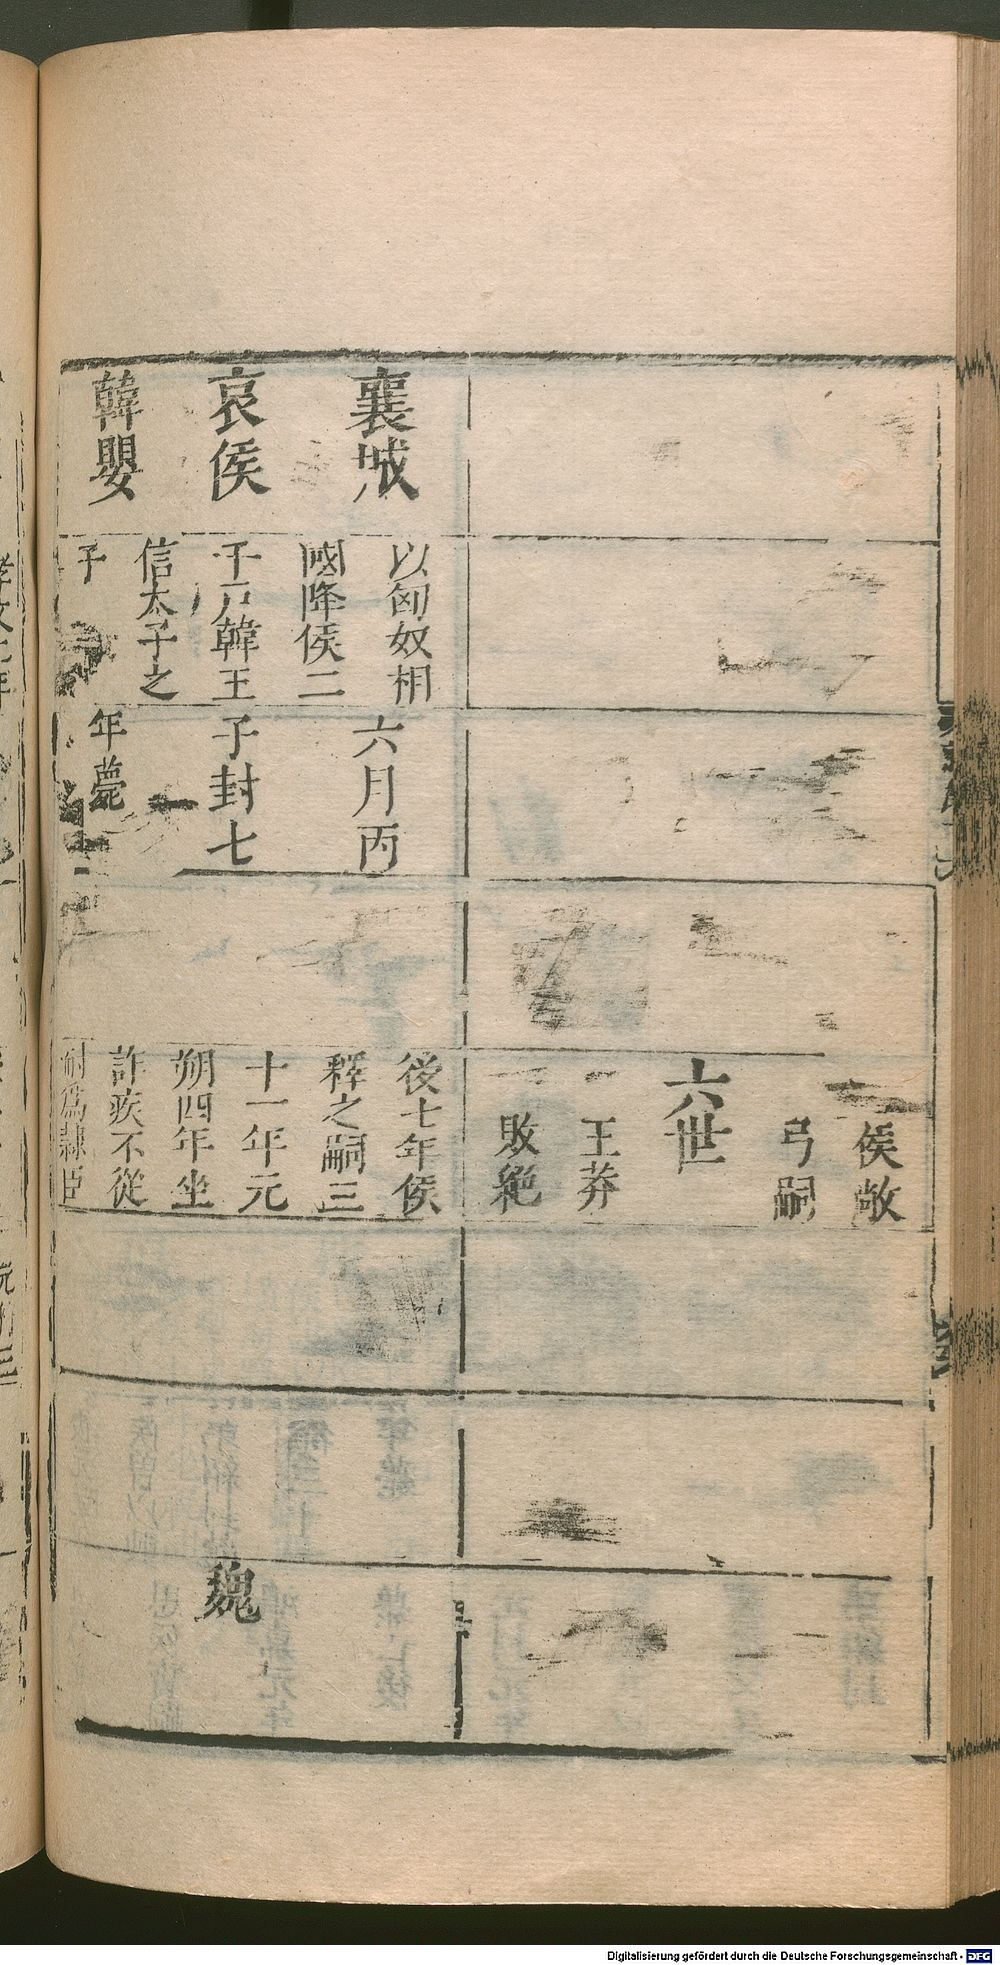 侯敞
弓嗣
六世
王莽
敗絶
襄城
哀侯
韓嬰
以匈奴相
國降侯二
千戸韓王
信太子之
子
六月丙
子封七
年薨
後七年侯
釋之嗣三
十一年元
朔四年坐
詐疾不從
耐爲隷臣
魏
Digitalisierung gefördert durch die Deutsche Forschungsgemeinschaft - DFG